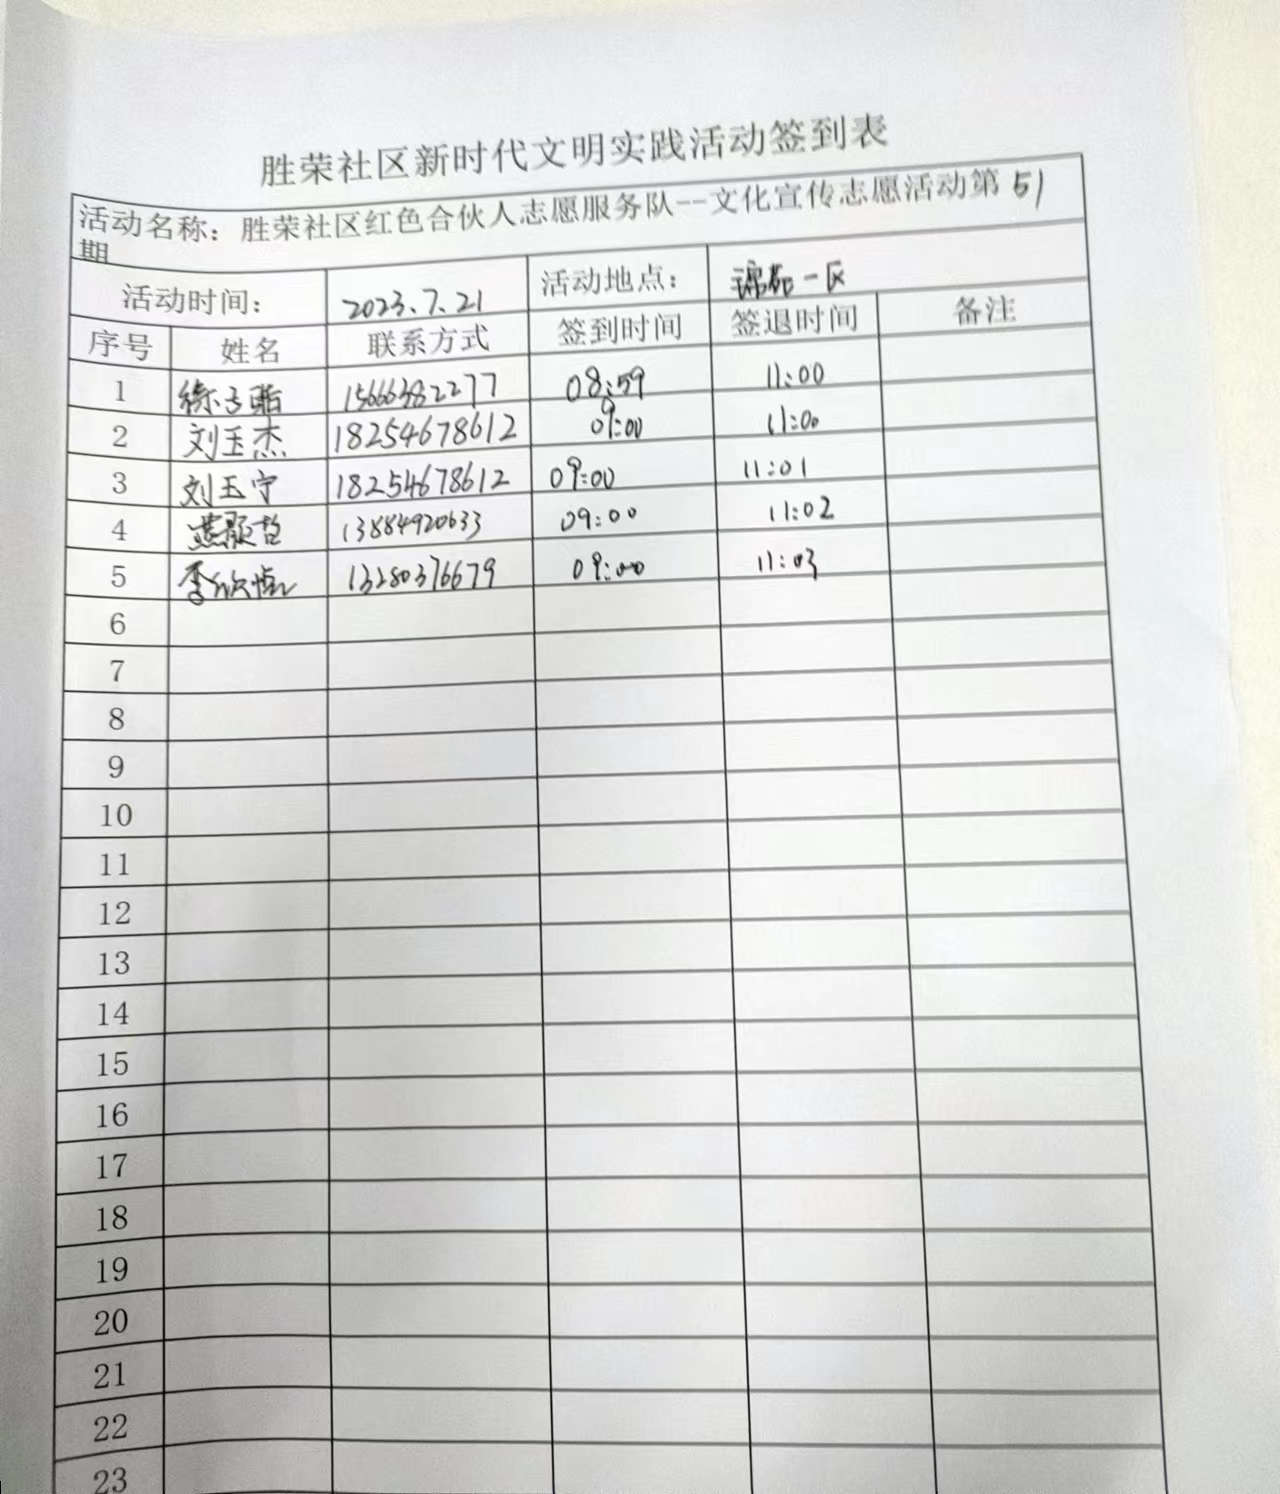 胜荣社区新时代文明实践活动签到表
活动名称：胜荣社区红色合伙人志愿服务队--文化宣传志愿活动第51
期
活动时间： 2023.7.21 活动地点： 锦苑一区
序号 姓名 联系方式 签到时间 签退时间 备注
1 徐子皓 15666382277 08:59 11:00
2 刘玉杰 18254678612 09:00 11:00
3 刘玉宁 18254678612 09:00 11:01
4 13884920633 09:00 11:02
5 李欣 13280376679 09:00 11:03
6
7
8
9
10
11
12
13
14
15
16
17
18
19
20
21
22
23